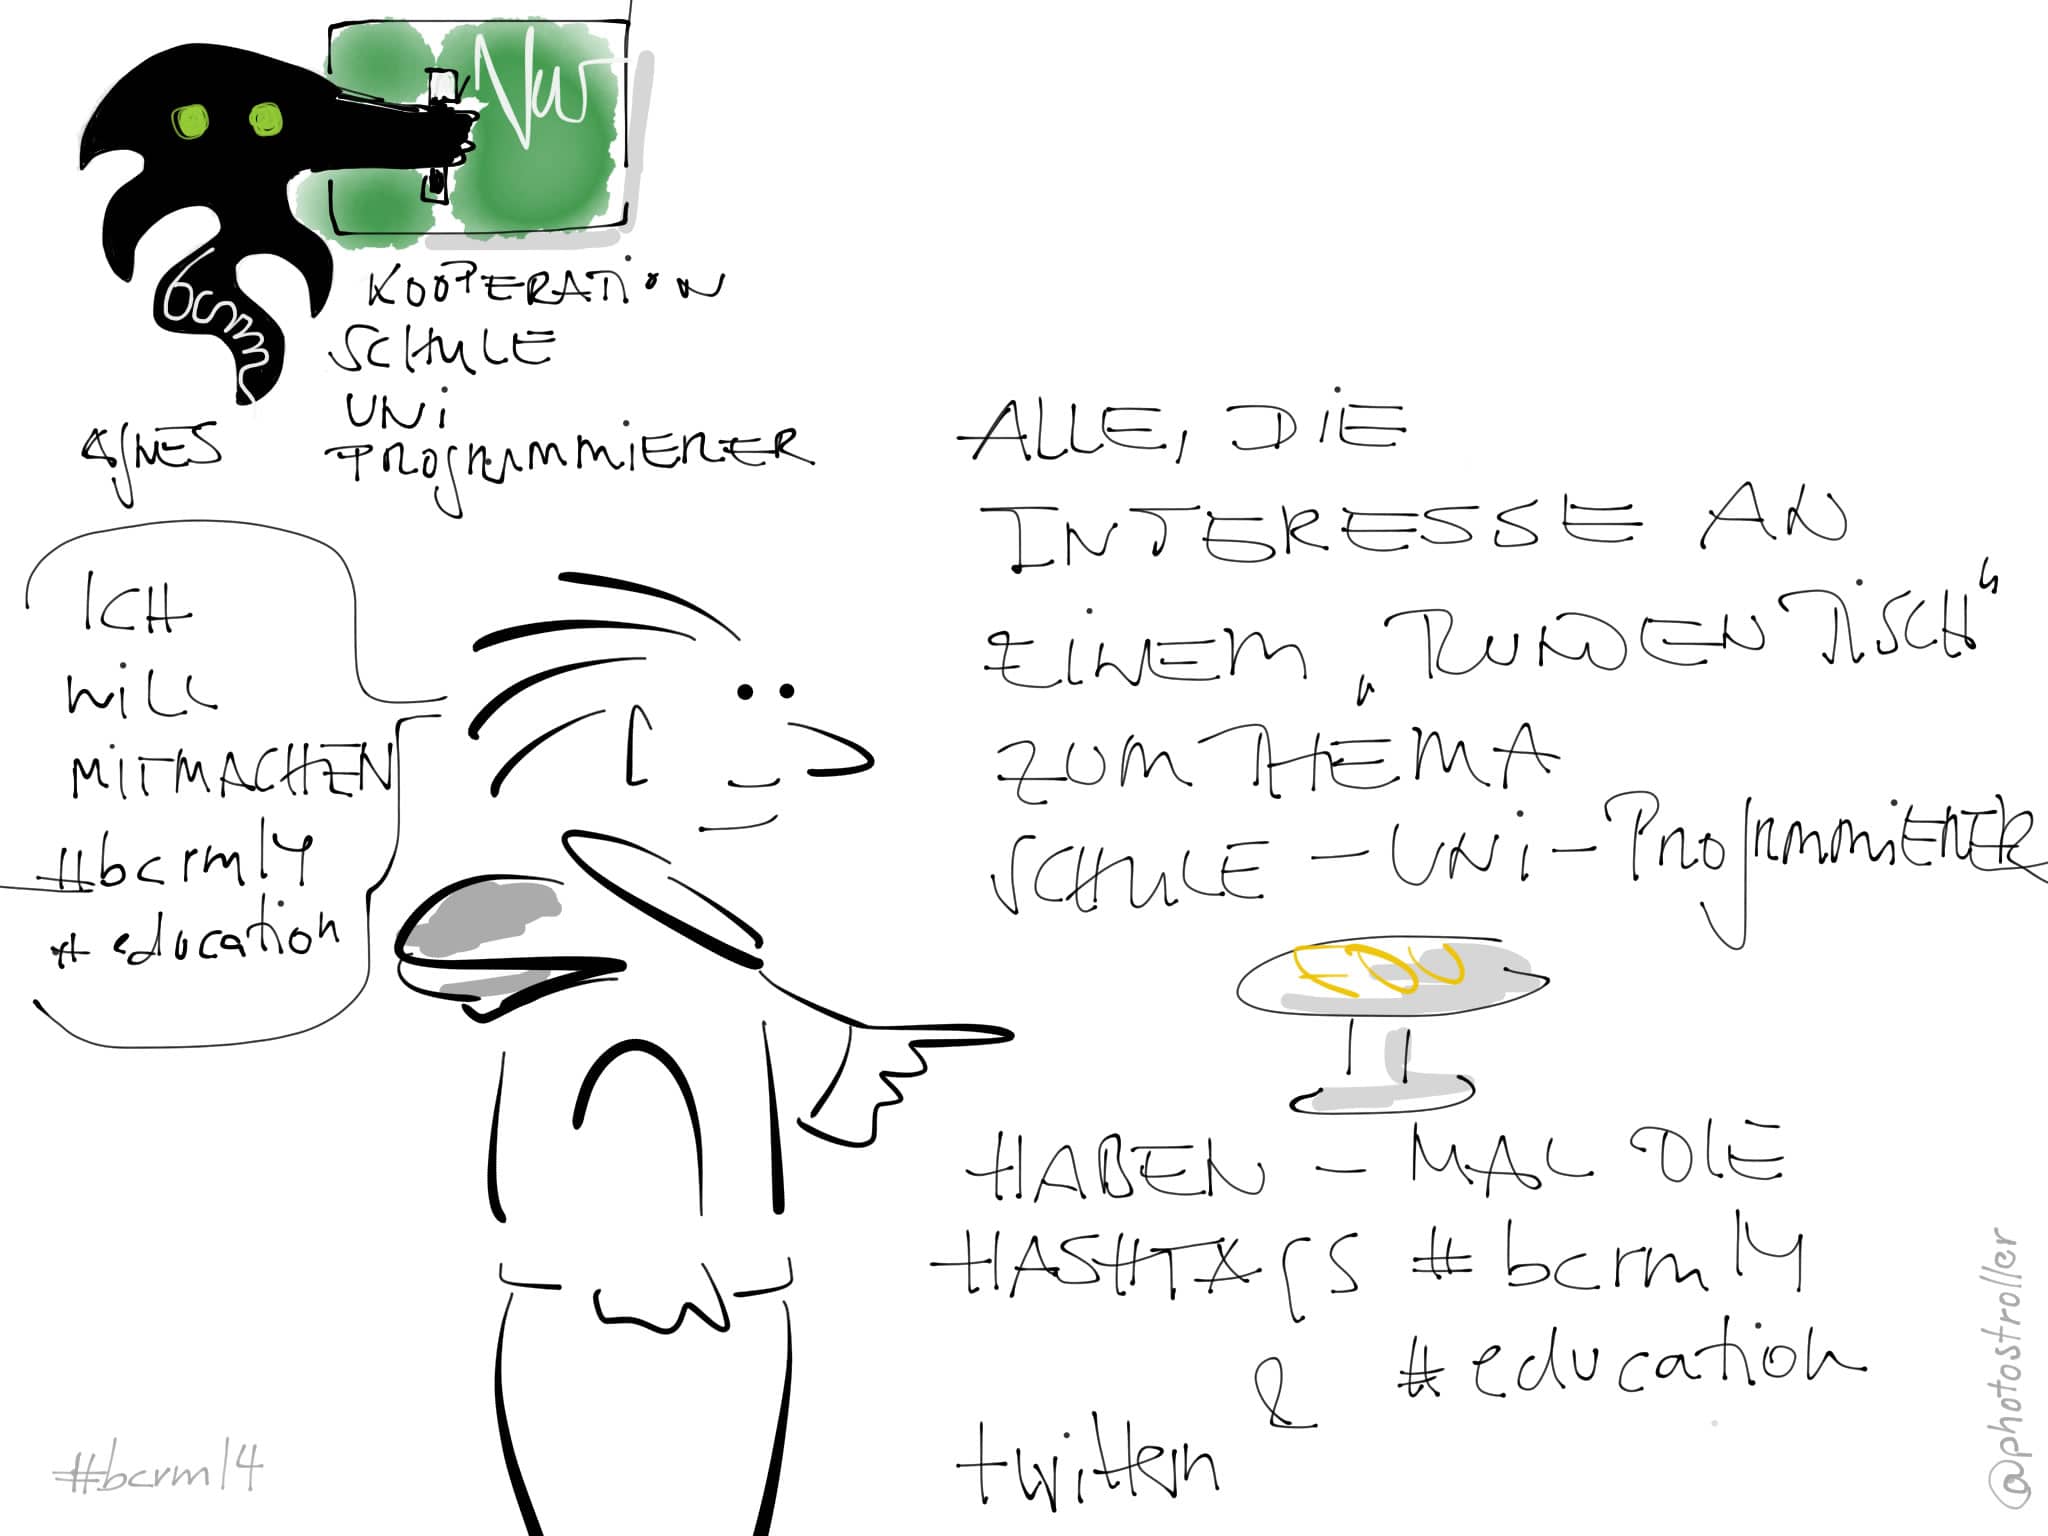 bcrm
KOOPERATION
SCHULE
UNi
PROGRAMMIERER
AGNES
ICH
WiLL
MiTMACHEN
#bcrm14
#education
ALLE, DiE
INTERESSE AN
EINEM „RUNDEN TiSCH“
ZUM THEMA
SCHULE-UNi-PROGRAMMiERER
EDU
HABEN - MAL DIE
HASHTAGS #bcrm14
& #education
twittern
#bcrm14
@photostroller